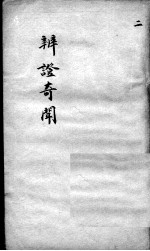 二
辨證奇聞